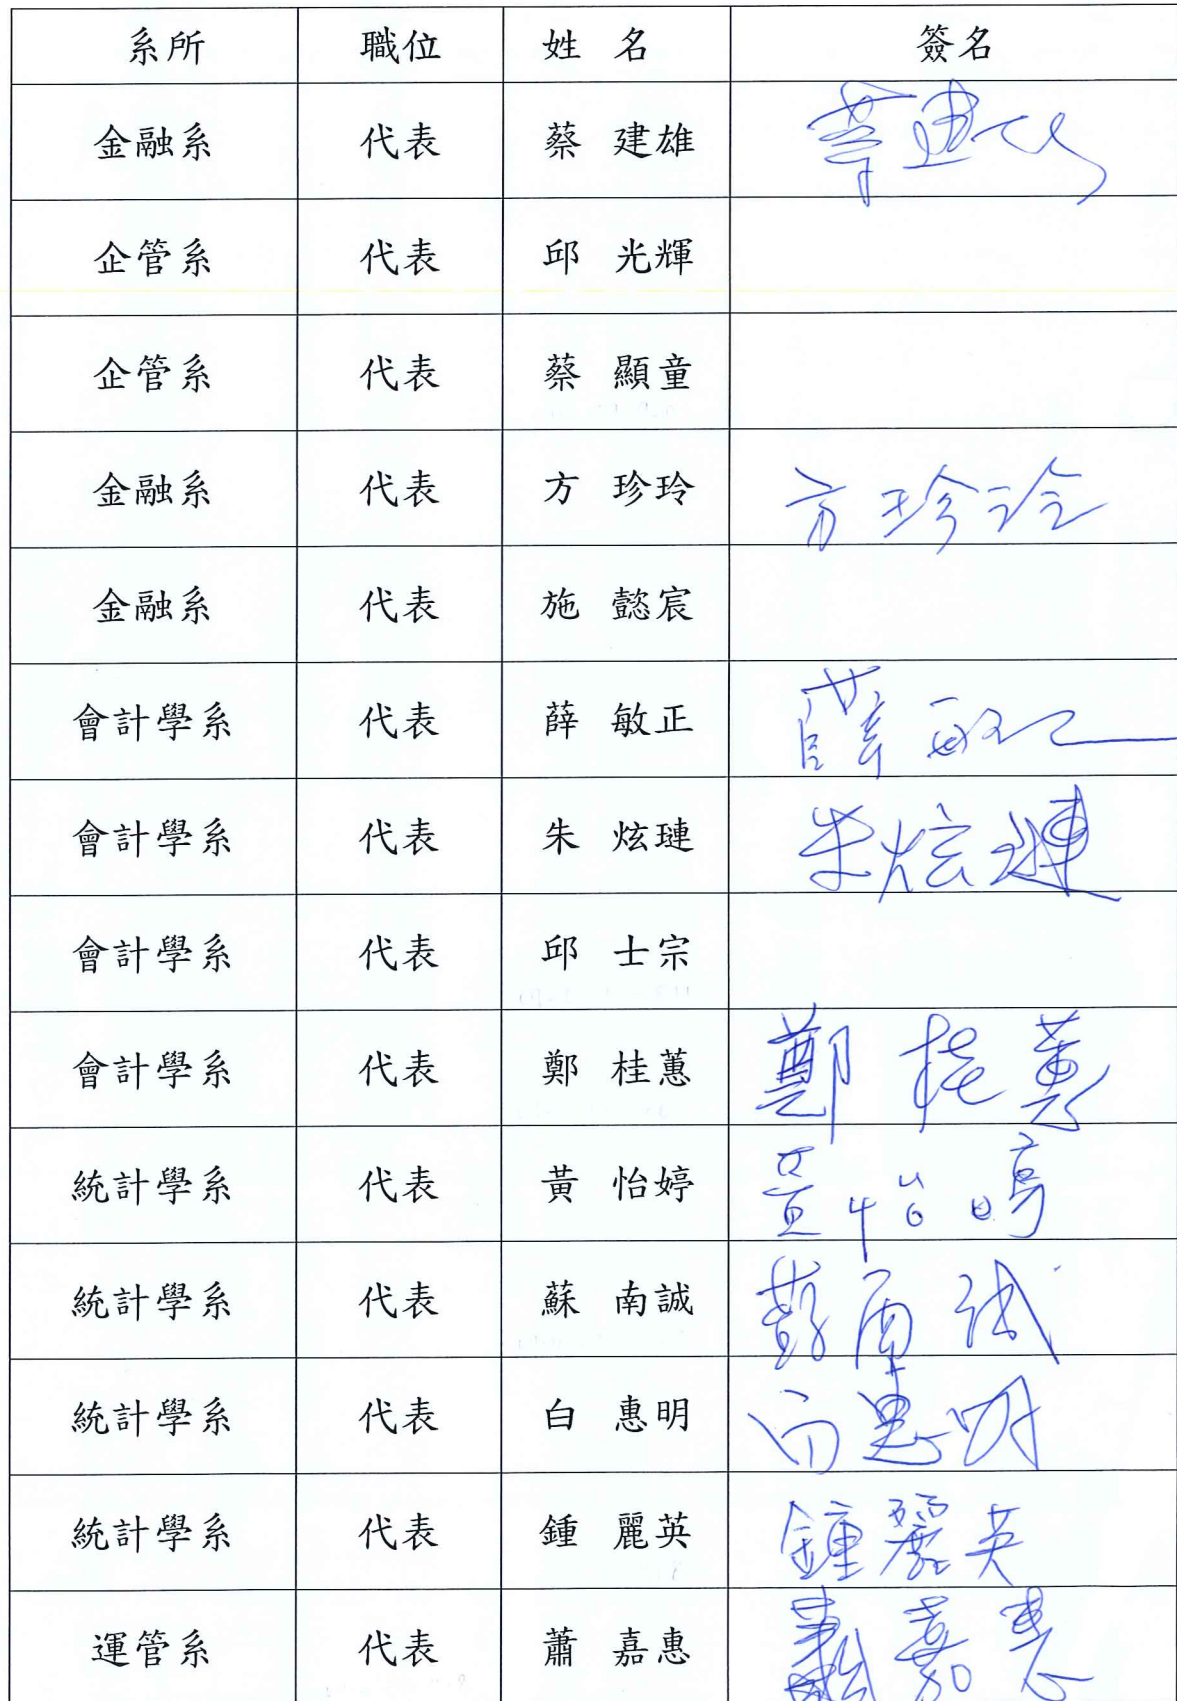 系所 職位 姓 名 簽名
金融系 代表 蔡 建雄 蔡建雄
企管系 代表 邱 光輝
企管系 代表 蔡 顯童
金融系 代表 方 珍玲 方珍玲
金融系 代表 施 懿宸
會計學系 代表 薛 敏正 薛敏正
會計學系 代表 朱 炫璉 朱炫璉
會計學系 代表 邱 士宗
會計學系 代表 鄭 桂蕙 鄭桂蕙
統計學系 代表 黃 怡婷 黃怡婷
統計學系 代表 蘇 南誠 蘇南誠
統計學系 代表 白 惠明 白惠明
統計學系 代表 鍾 麗英 鍾麗英
運管系 代表 蕭 嘉惠 蕭嘉惠